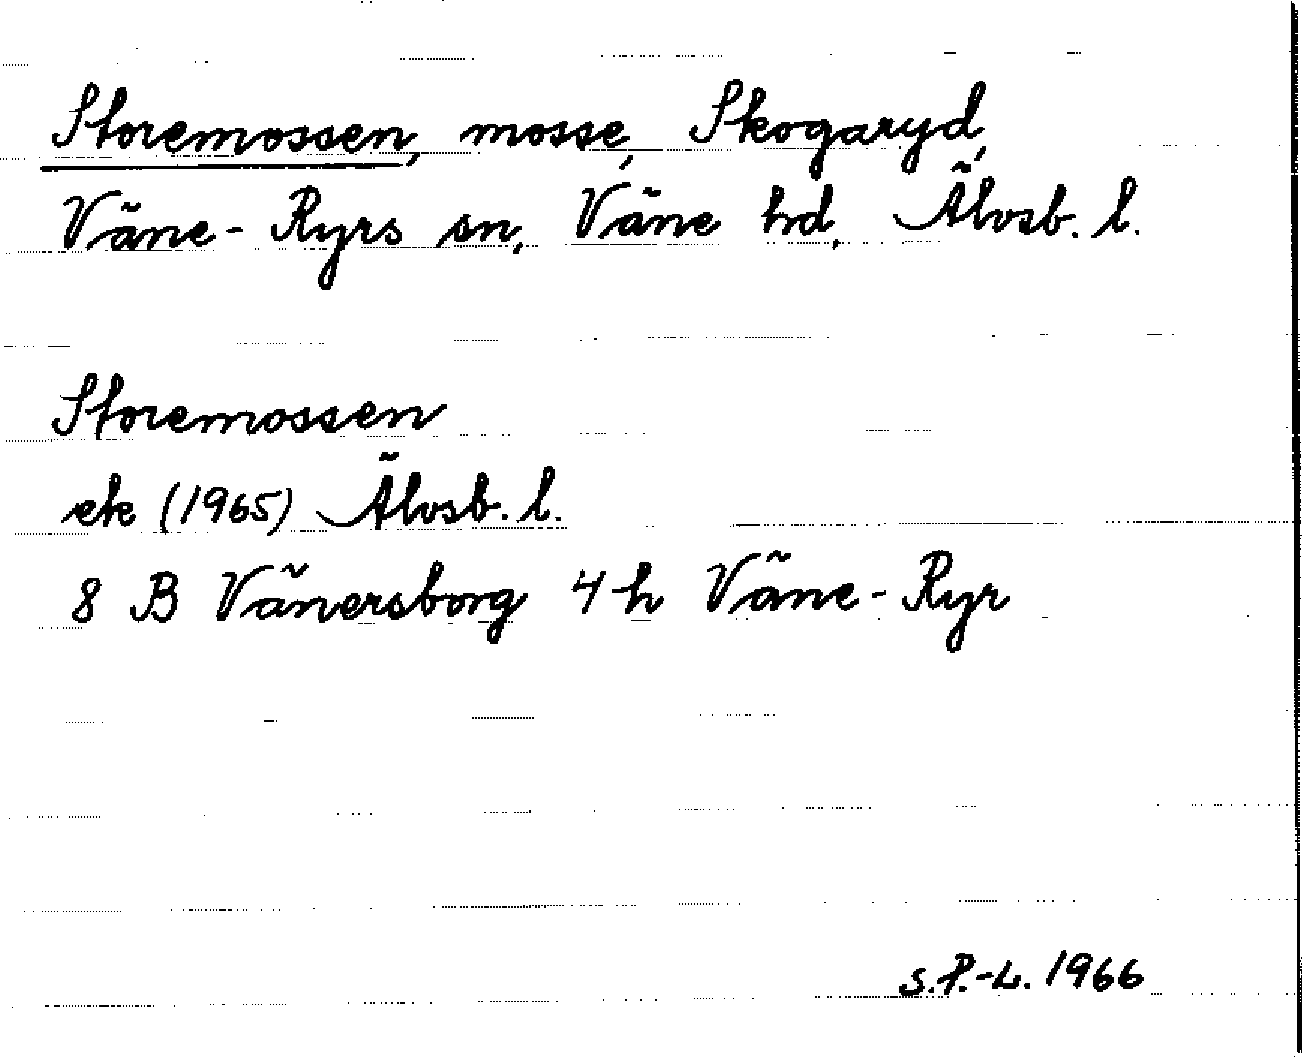 Storemossen, mosse, Skogaryd,
Väne-Ryrs sn, Väne hd, Älvsb. l.
Storemossen
ek (1965) Älvsb. l.
8 B Vänersborg 4 h Väne-Ryr
S.P.-L. 1966